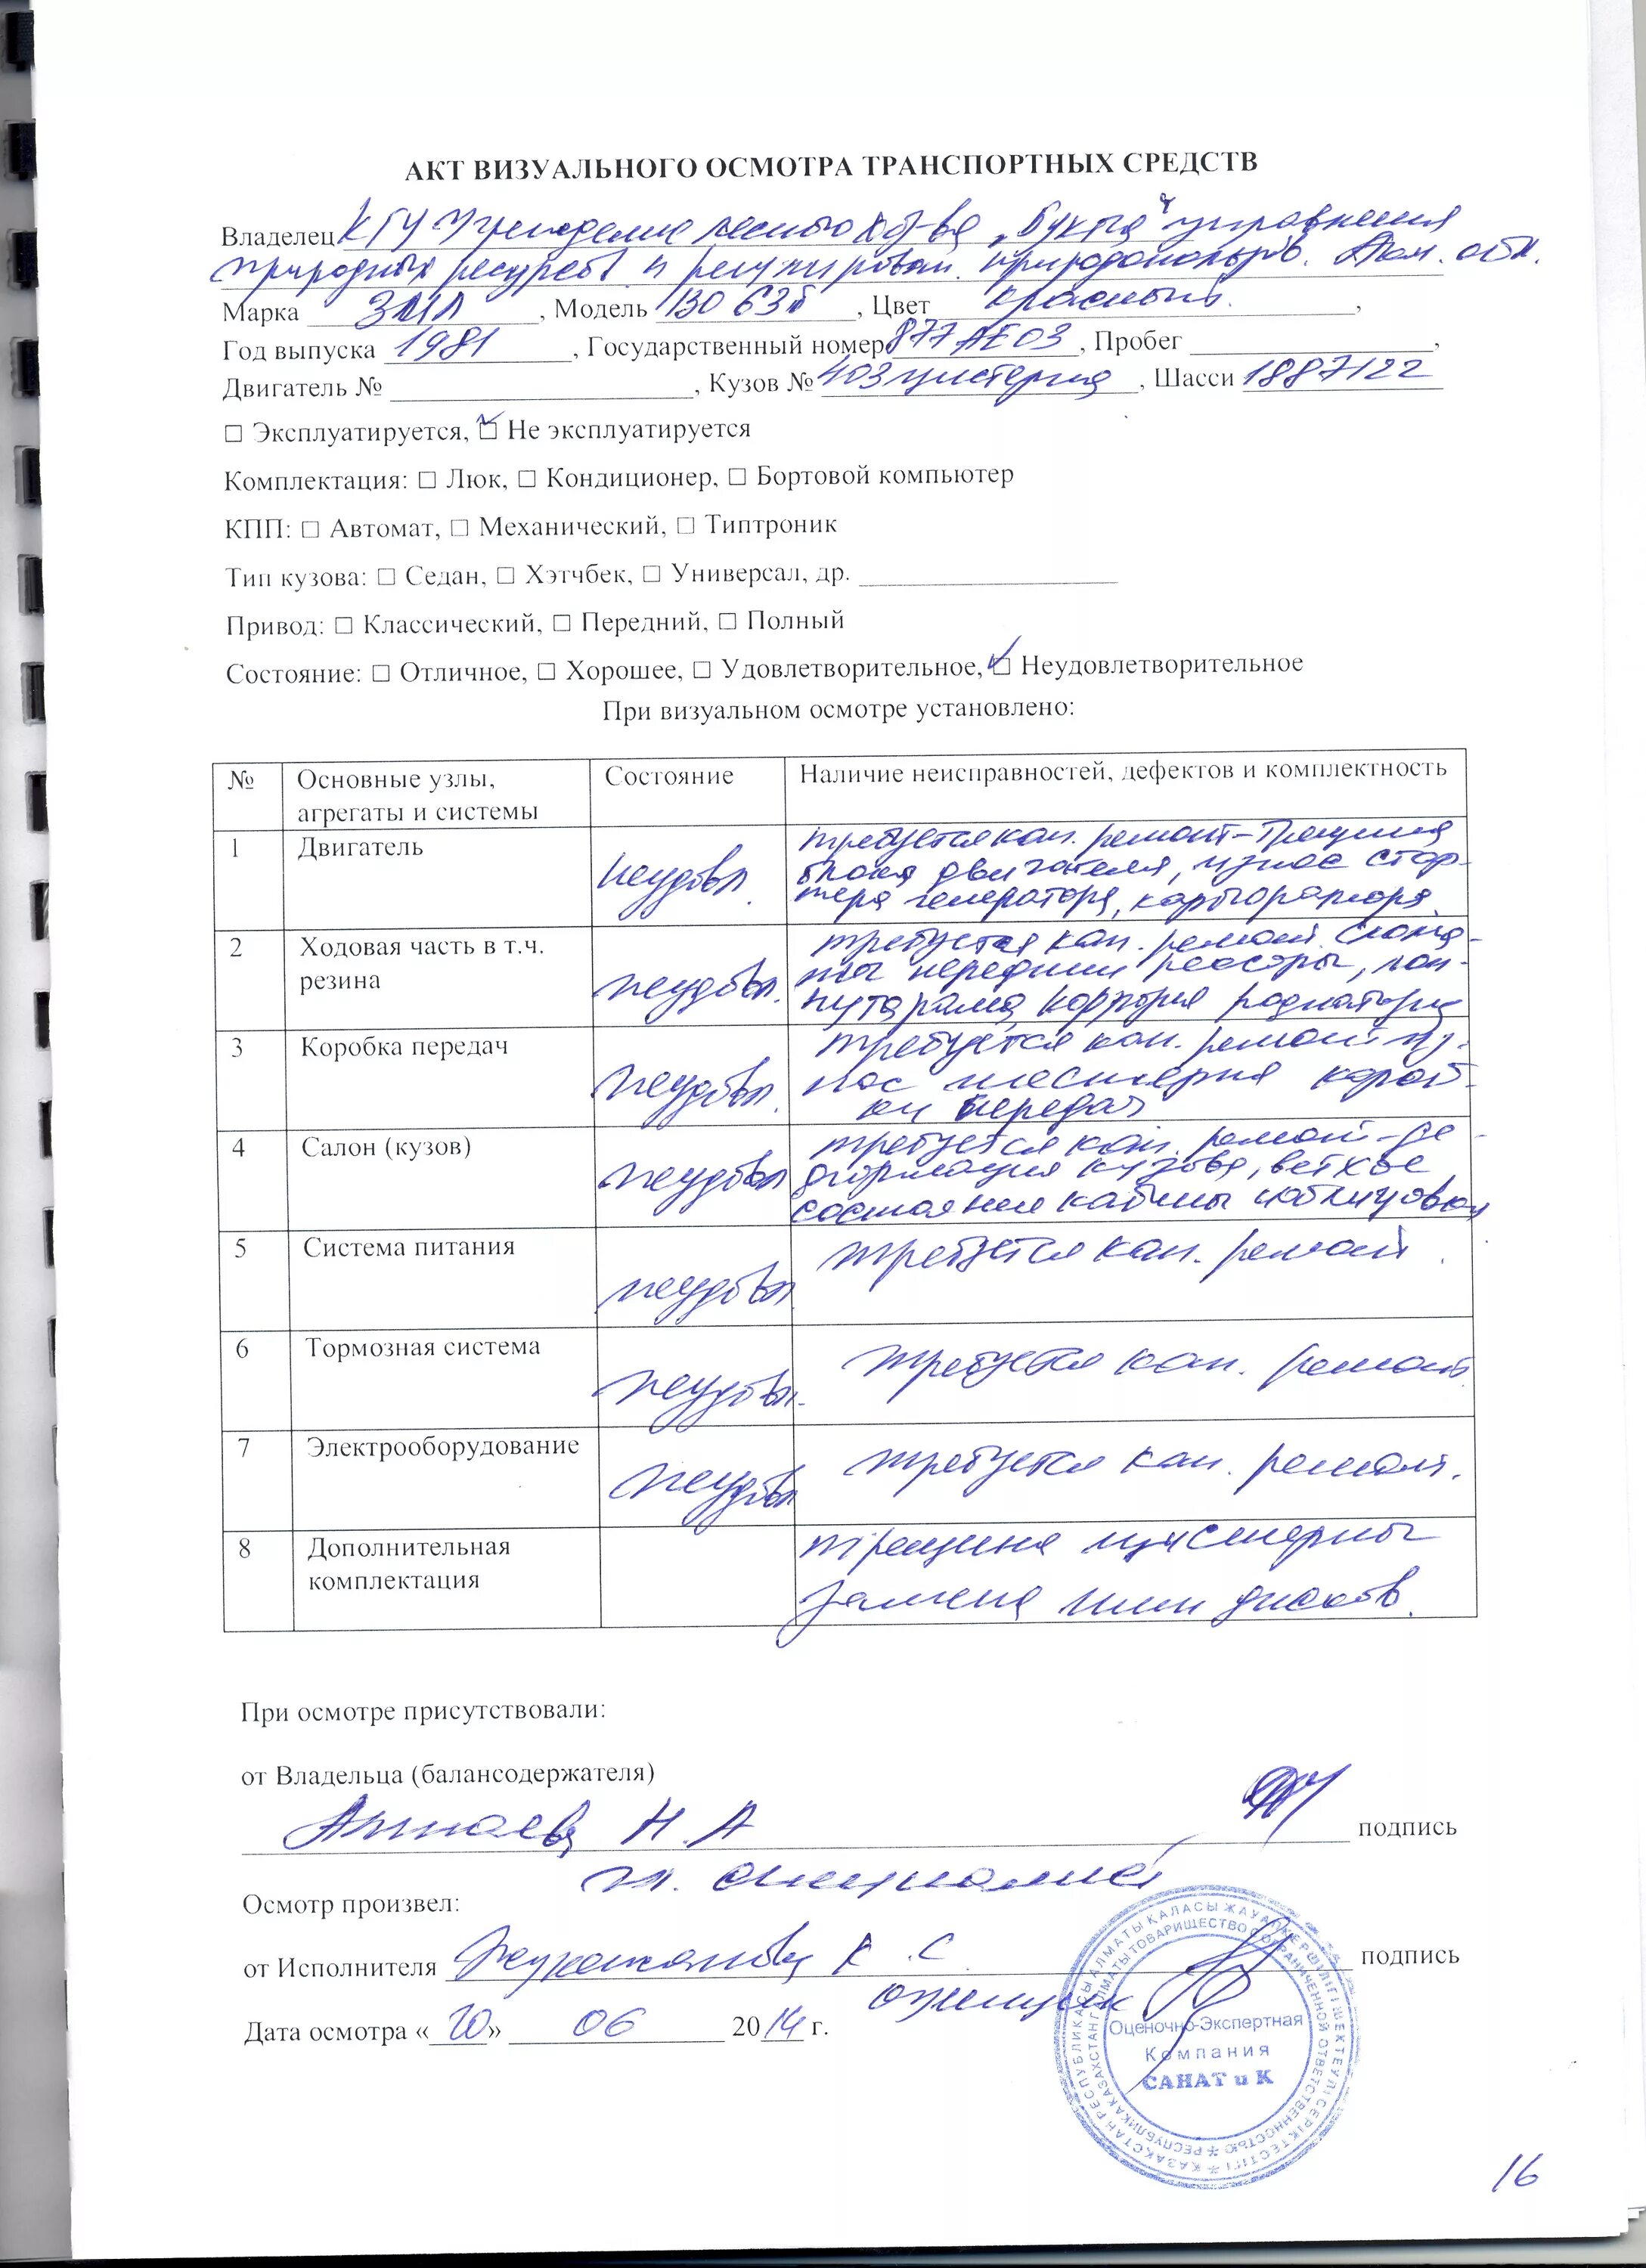 АКТ ВИЗУАЛЬНОГО ОСМОТРА ТРАНСПОРТНЫХ СРЕДСТВ
Владелец КГУ Учреждение лесного хоз-ва „Букпа“ управления
природных ресурсов и регулирован. природопольз. Акм. обл.
Марка ЗИЛ, Модель 130 63Б, Цвет красный,
Год выпуска 1981, Государственный номер 877 АЕ 03, Пробег ,
Двигатель № , Кузов № 403 цистерна, Шасси 1887122
☐ Эксплуатируется, ☑ Не эксплуатируется
Комплектация: ☐ Люк, ☐ Кондиционер, ☐ Бортовой компьютер
КПП: ☐ Автомат, ☐ Механический, ☐ Типтроник
Тип кузова: ☐ Седан, ☐ Хэтчбек, ☐ Универсал, др.
Привод: ☐ Классический, ☐ Передний, ☐ Полный
Состояние: ☐ Отличное, ☐ Хорошее, ☐ Удовлетворительное, ☑ Неудовлетворительное
При визуальном осмотре установлено:
№ Основные узлы, агрегаты и системы Состояние Наличие неисправностей, дефектов и комплектность
1 Двигатель неудовл. требуется кап. ремонт - Трещина
блока двигателя, износ стар-
тера генератора, карбюратора.
2 Ходовая часть в т.ч. резина неудовл. требуется кап. ремонт. Слома-
ны передние рессоры, лоп-
нута рама, коррозия радиатора
3 Коробка передач неудовл. требуется кап. ремонт из-
нос шестерня короб-
ки передач
4 Салон (кузов) неудовл требуется кап. ремонт - де-
формация кузова, ветхое
состояние кабины и облицовки
5 Система питания неудовл требуется кап. ремонт.
6 Тормозная система неудовл. требуется кап. ремонт
7 Электрооборудование неудовл требуется кап. ремонт.
8 Дополнительная комплектация трещина цистерны
замена шин дисков.
При осмотре присутствовали:
от Владельца (балансодержателя)
Н. А
подпись
гл. специалист
Осмотр произвел:
от Исполнителя К. С подпись
оценщик
Дата осмотра «20» 06 2014 г.
ҚАЗАҚСТАН РЕСПУБЛИКАСЫ АЛМАТЫ ҚАЛАСЫ ЖАУАПКЕРШІЛІГІ ШЕКТЕУЛІ СЕРІКТЕСТІГІ
РЕСПУБЛИКА КАЗАХСТАН Г. АЛМАТЫ ТОВАРИЩЕСТВО С ОГРАНИЧЕННОЙ ОТВЕТСТВЕННОСТЬЮ
Оценочно-Экспертная
Компания
САНАТ и К
16